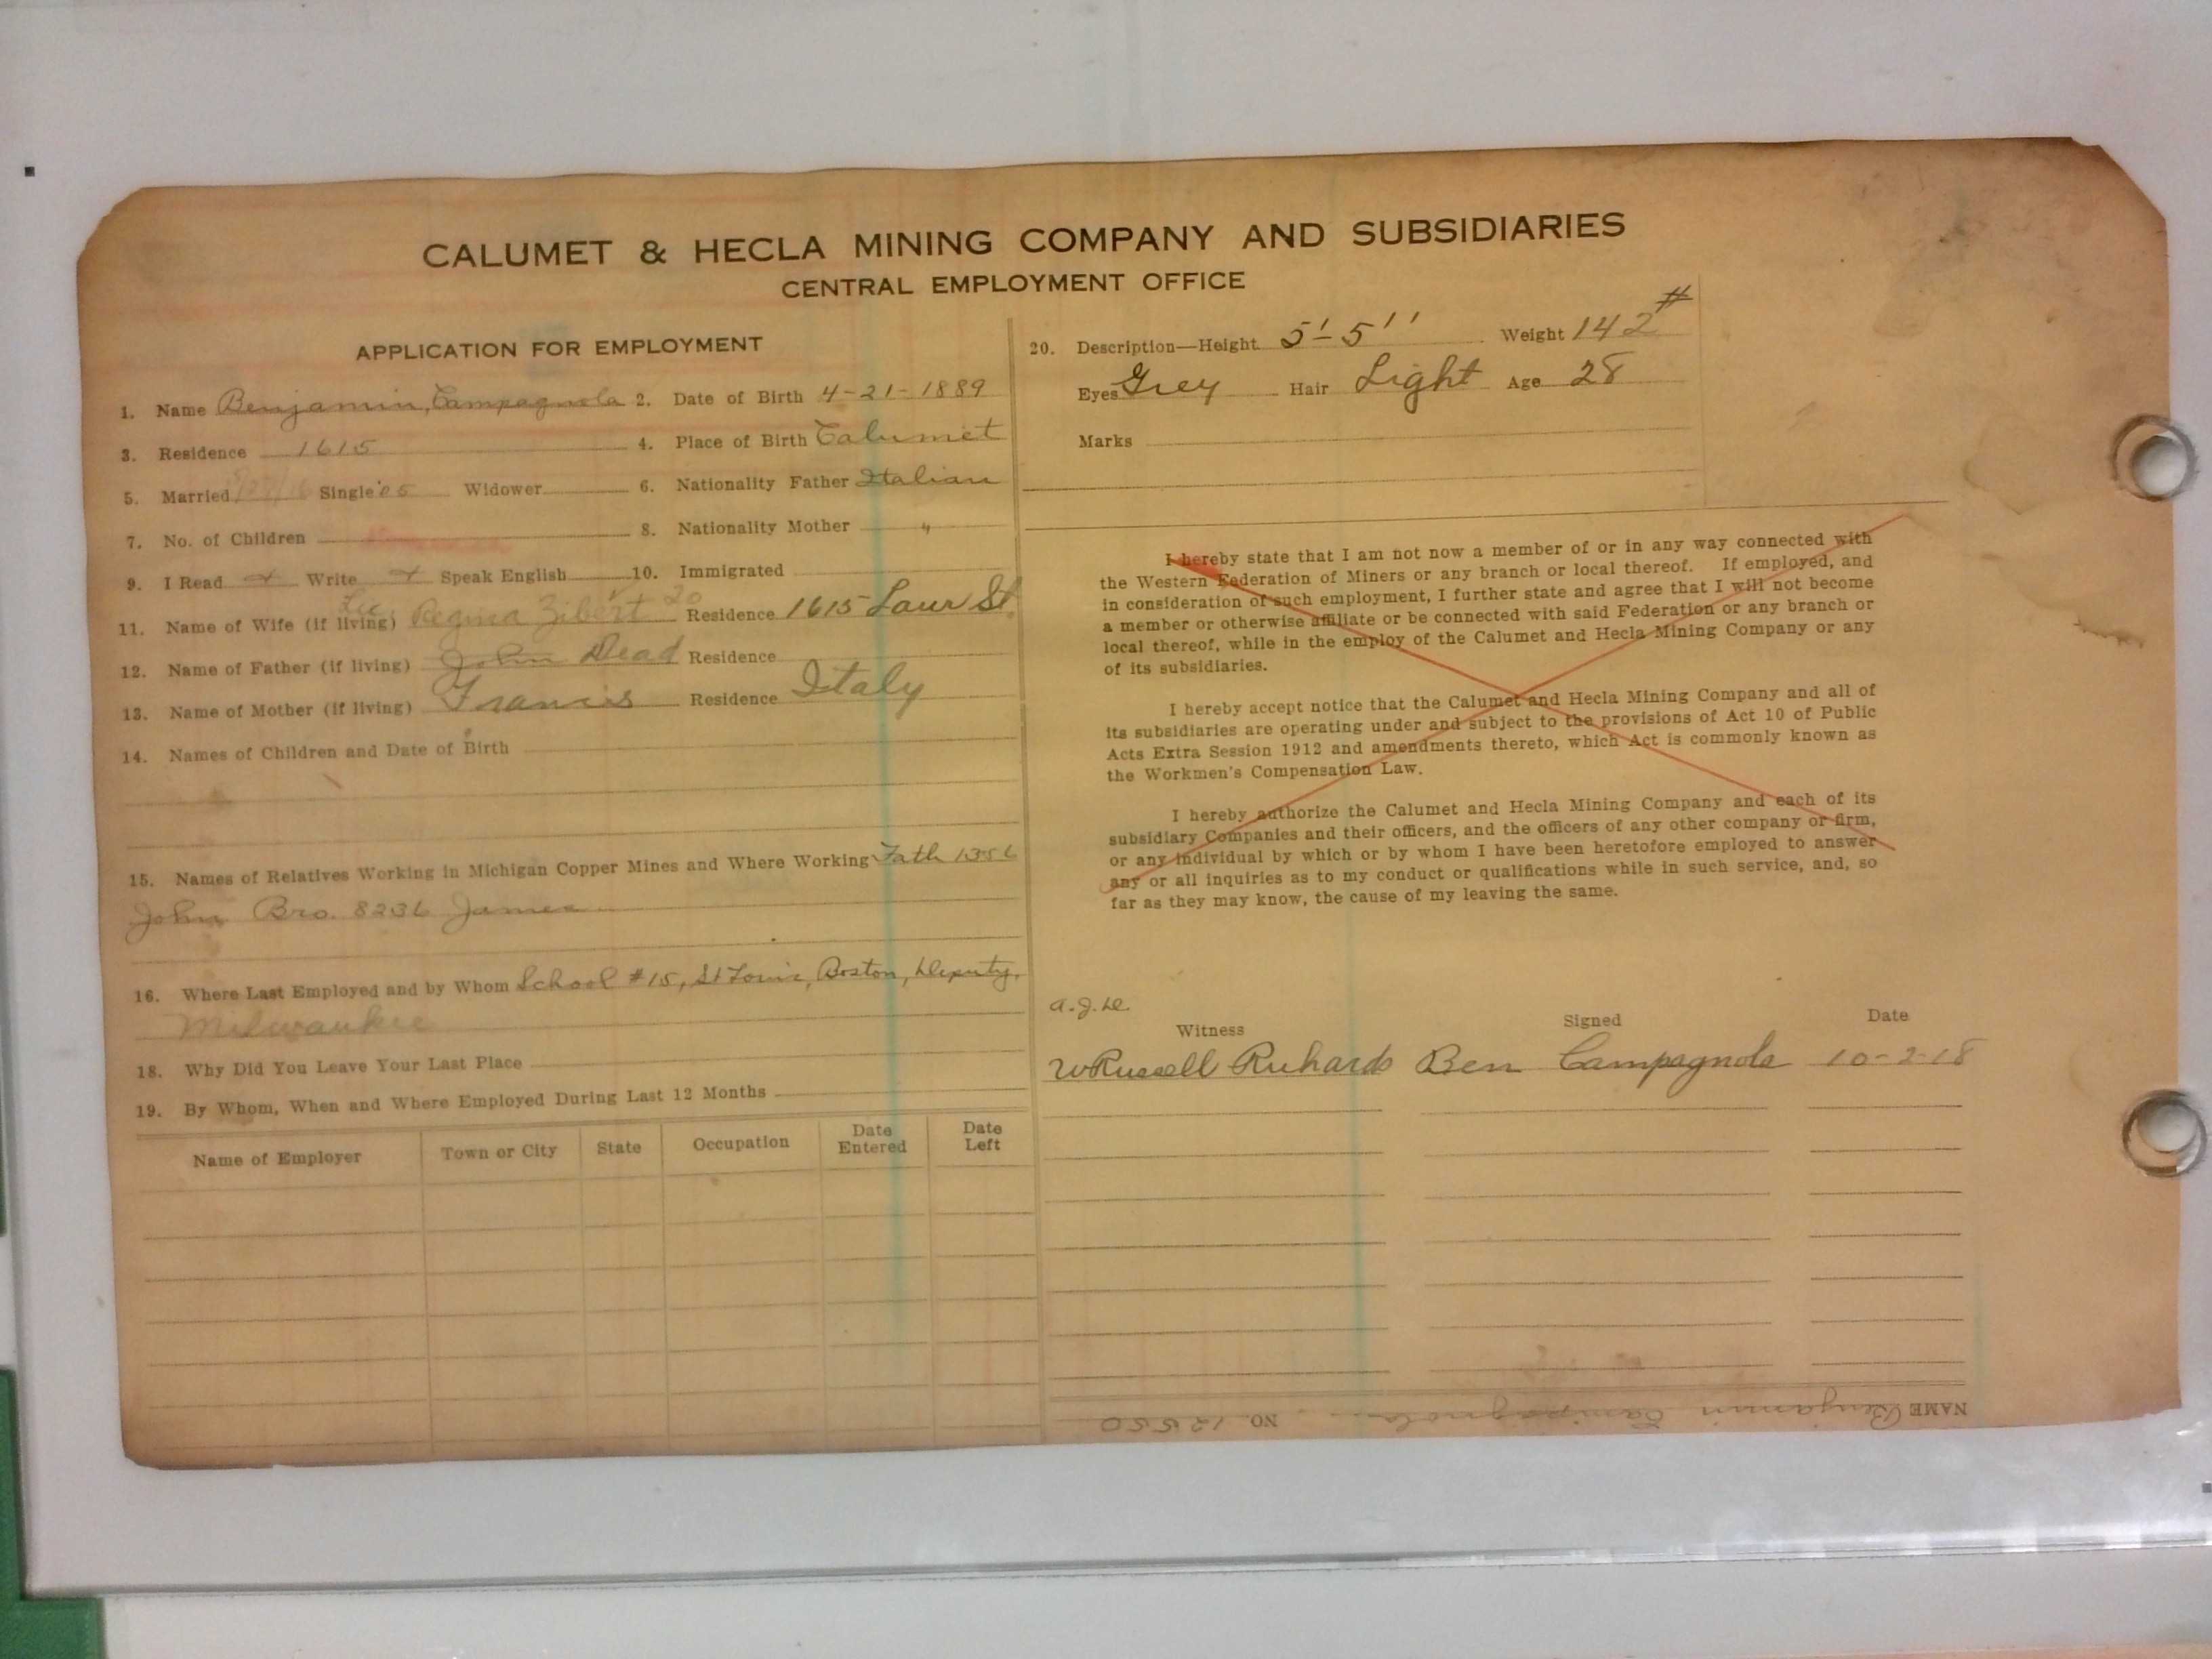 CALUMET & HECLA MINING COMPANY AND SUBSIDIARIES
CENTRAL EMPLOYMENT OFFICE
APPLICATION FOR EMPLOYMENT
1. Name Benjamin, Campagnola 2. Date of Birth 4-21-1889
3. Residence 1615 4. Place of Birth Calumet
5. Married Single '05 Widower 6. Nationality Father Italian
7. No. of Children 8. Nationality Mother "
9. I Read Write Speak English 10. Immigrated
11. Name of Wife (if living) Regina Zibert 20 Residence 1615 Laur St.
12. Name of Father (if living) John Dead Residence
13. Name of Mother (if living) Francis Residence Italy
14. Names of Children and Date of Birth
15. Names of Relatives Working in Michigan Copper Mines and Where Working Fath 1356
John Bro. 8236 James
16. Where Last Employed and by Whom School #15, St Louis, Boston, Deputy,
Milwaukee
18. Why Did You Leave Your Last Place
19. By Whom, When and Where Employed During Last 12 Months
Name of Employer Town or City State Occupation Date Entered Date Left
20. Description—Height 5'-5'' Weight 142#
Eyes Grey Hair Light Age 28
Marks
I hereby state that I am not now a member of or in any way connected with
the Western Federation of Miners or any branch or local thereof. If employed, and
in consideration of such employment, I further state and agree that I will not become
a member or otherwise affiliate or be connected with said Federation or any branch or
local thereof, while in the employ of the Calumet and Hecla Mining Company or any
of its subsidiaries.
I hereby accept notice that the Calumet and Hecla Mining Company and all of
its subsidiaries are operating under and subject to the provisions of Act 10 of Public
Acts Extra Session 1912 and amendments thereto, which Act is commonly known as
the Workmen's Compensation Law.
I hereby authorize the Calumet and Hecla Mining Company and each of its
subsidiary Companies and their officers, and the officers of any other company or firm,
or any individual by which or by whom I have been heretofore employed to answer
any or all inquiries as to my conduct or qualifications while in such service, and, so
far as they may know, the cause of my leaving the same.
Witness Signed Date
W Russell Richards Ben Campagnola 10-2-18
NAME Benjamin Campagnola NO. 12550